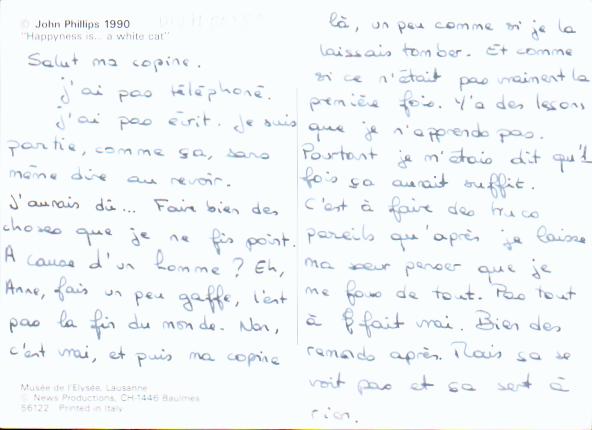 © John Phillips 1990
"Happyness is... a white cat"
Salut ma copine.
j'ai pas téléphoné.
j'ai pas écrit. Je suis
partie, comme ça, sans
même dire au revoir.
J'aurais dû... Faire bien des
choses que je ne fis point.
A cause d'un homme ? Eh,
Anne, fais un peu gaffe, c'est
pas la fin du monde. Non,
c'est vrai, et puis ma copine
Musée de l'Elysée, Lausanne
© News Productions, CH-1446 Baulmes
56122 Printed in Italy
là, un peu comme si je la
laissais tomber. Et comme
si ce n'était pas vraiment la
première fois. Y'a des leçons
que je n'apprends pas.
Pourtant je m'étais dit qu'1
fois ça aurait suffit.
C'est à faire des trucs
pareils qu'après je laisse
ma sœur penser que je
me fous de tout. Pas tout
à fait vrai. Bien des
remords après. Mais ça se
voit pas et ça sert à
rien.